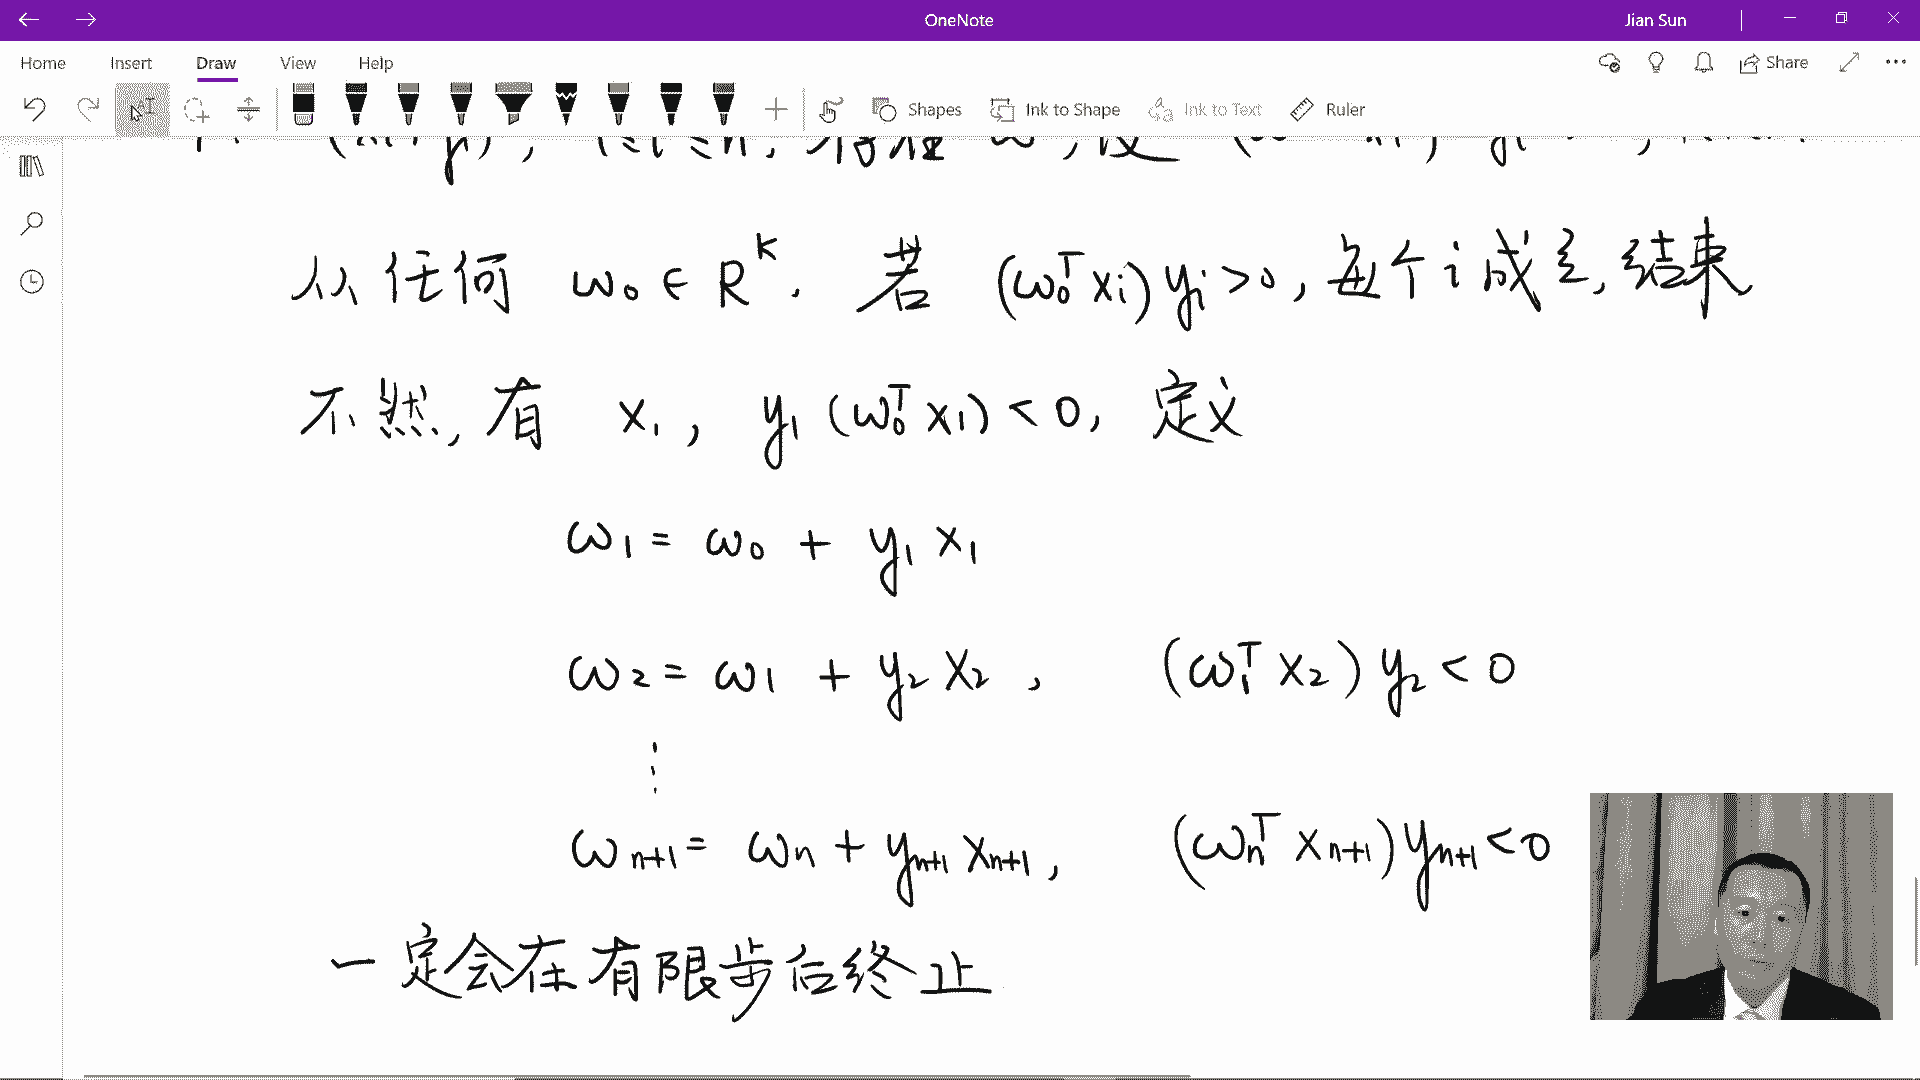 OneNote
Jian Sun
Home Insert Draw View Help
Share
Shapes Ink to Shape Ink to Text Ruler
从任何 ω₀ ∈ R^K. 若 (ω₀ᵀ xᵢ) yᵢ > 0, 每个 i 成立, 结束
不然, 有 x₁, y₁ (ω₀ᵀ x₁) < 0, 定义
ω₁ = ω₀ + y₁ x₁
ω₂ = ω₁ + y₂ x₂, (ω₁ᵀ x₂) y₂ < 0
⋮
ωₙ₊₁ = ωₙ + yₙ₊₁ xₙ₊₁, (ωₙᵀ xₙ₊₁) yₙ₊₁ < 0
一定会在有限步后终止